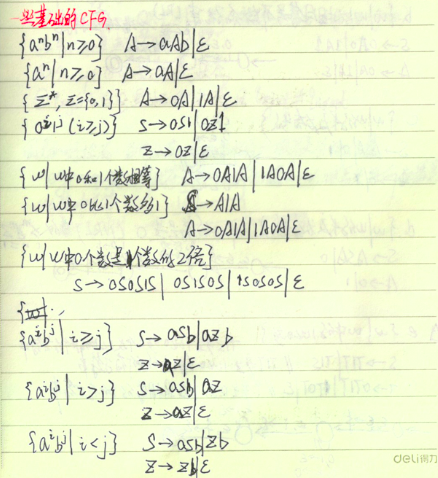 一些基础的CFG
{aⁿbⁿ|n≥0} A→aAb|ε
{aⁿ|n≥0} A→aA|ε
{Σ*, Σ={0,1}} A→0A|1A|ε
{0ⁱ1ʲ(i≥j)} S→0S1|0Z1
Z→0Z|ε
{w|w中0和1个数相等} A→0A1A|1A0A|ε
{w|w中0比1个数多1} S→A1A
A→0A1A|1A0A|ε
{w|w中0个数是1个数的2倍}
S→0S0S1S|0S1S0S|1S0S0S|ε
{aⁱbʲ|i≥j} S→aSb|aZb
Z→aZ|ε
{aⁱbʲ|i>j} S→aSb|aZ
Z→aZ|ε
{aⁱbʲ|i<j} S→aSb|Zb
Z→Zb|ε
deli得力